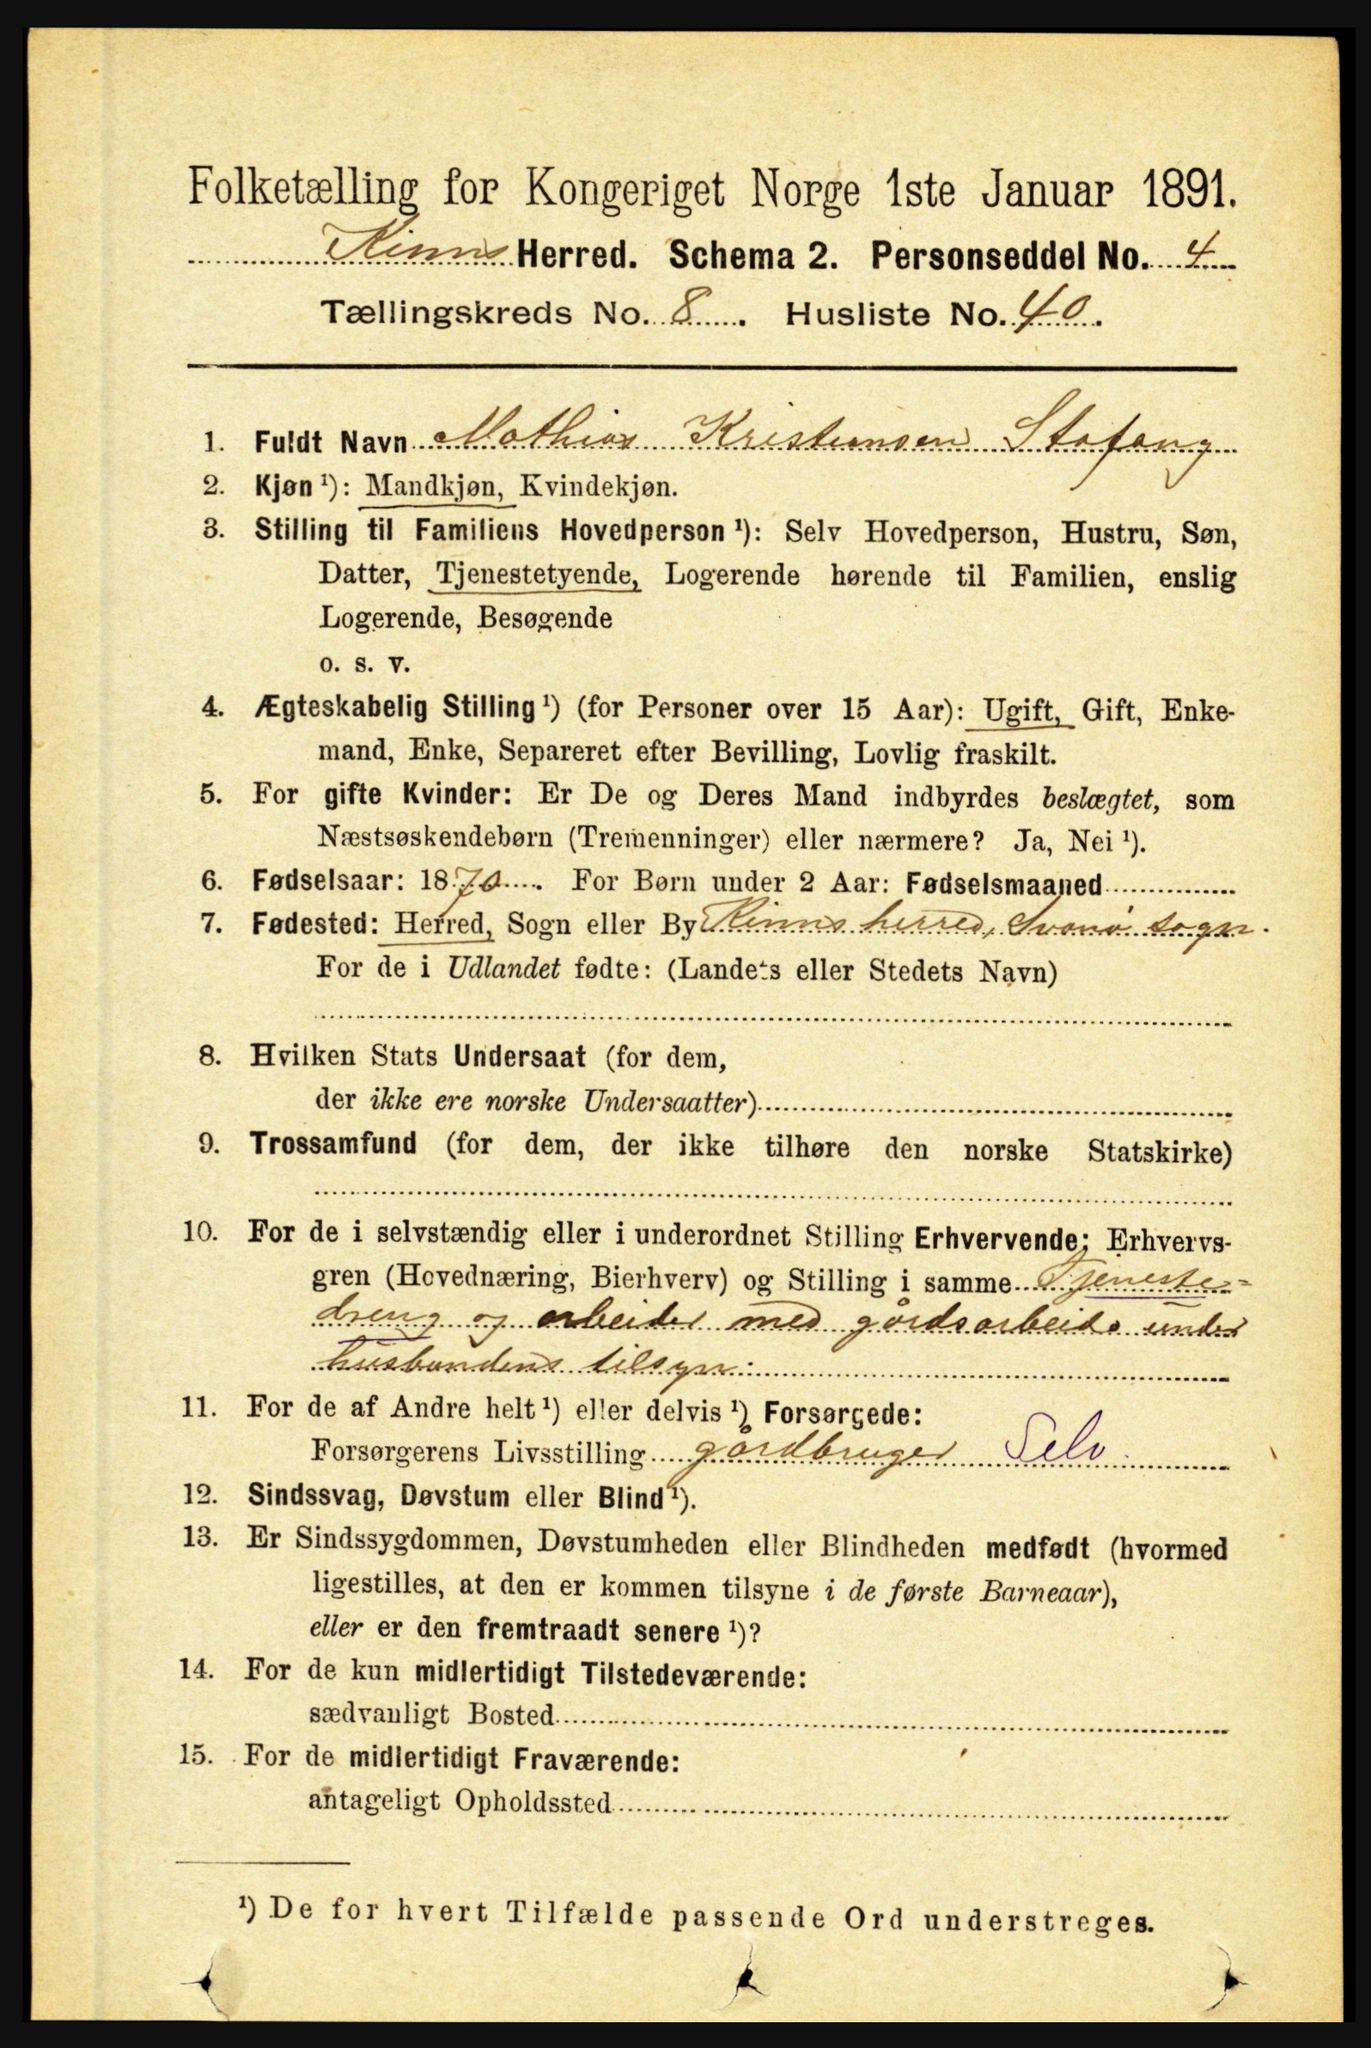 Folketælling for Kongeriget Norge 1ste Januar 1891.
Kinns Herred. Schema 2. Personseddel No. 4
Tællingskreds No. 8. Husliste No. 40.
1. Fuldt Navn Mathias Kristensen Stafang
2. Kjøn ¹): Mandkjøn, Kvindekjøn.
3. Stilling til Familiens Hovedperson ¹): Selv Hovedperson, Hustru, Søn,
Datter, Tjenestetyende, Logerende hørende til Familien, enslig
Logerende, Besøgende
o. s. v.
4. Ægteskabelig Stilling ¹) (for Personer over 15 Aar): Ugift, Gift, Enke-
mand, Enke, Separeret efter Bevilling, Lovlig fraskilt.
5. For gifte Kvinder: Er De og Deres Mand indbyrdes beslægtet, som
Næstsøskendebørn (Tremenninger) eller nærmere? Ja, Nei ¹).
6. Fødselsaar: 1870. For Børn under 2 Aar: Fødselsmaaned
7. Fødested: Herred, Sogn eller By Kinns herred, Svanø sogn.
For de i Udlandet fødte: (Landets eller Stedets Navn)
8. Hvilken Stats Undersaat (for dem,
der ikke ere norske Undersaatter)
9. Trossamfund (for dem, der ikke tilhøre den norske Statskirke)
10. For de i selvstændig eller i underordnet Stilling Erhvervende: Erhvervs-
gren (Hovednæring, Bierhverv) og Stilling i samme Tjeneste-
dreng og arbeider med gårdsarbeide under
husbondens tilsyn.
11. For de af Andre helt ¹) eller delvis ¹) Forsørgede:
Forsørgerens Livsstilling gårdbruger Selv.
12. Sindssvag, Døvstum eller Blind ¹).
13. Er Sindssygdommen, Døvstumheden eller Blindheden medfødt (hvormed
ligestilles, at den er kommen tilsyne i de første Barneaar),
eller er den fremtraadt senere ¹)?
14. For de kun midlertidigt Tilstedeværende:
sædvanligt Bosted
15. For de midlertidigt Fraværende:
antageligt Opholdssted
¹) De for hvert Tilfælde passende Ord understreges.